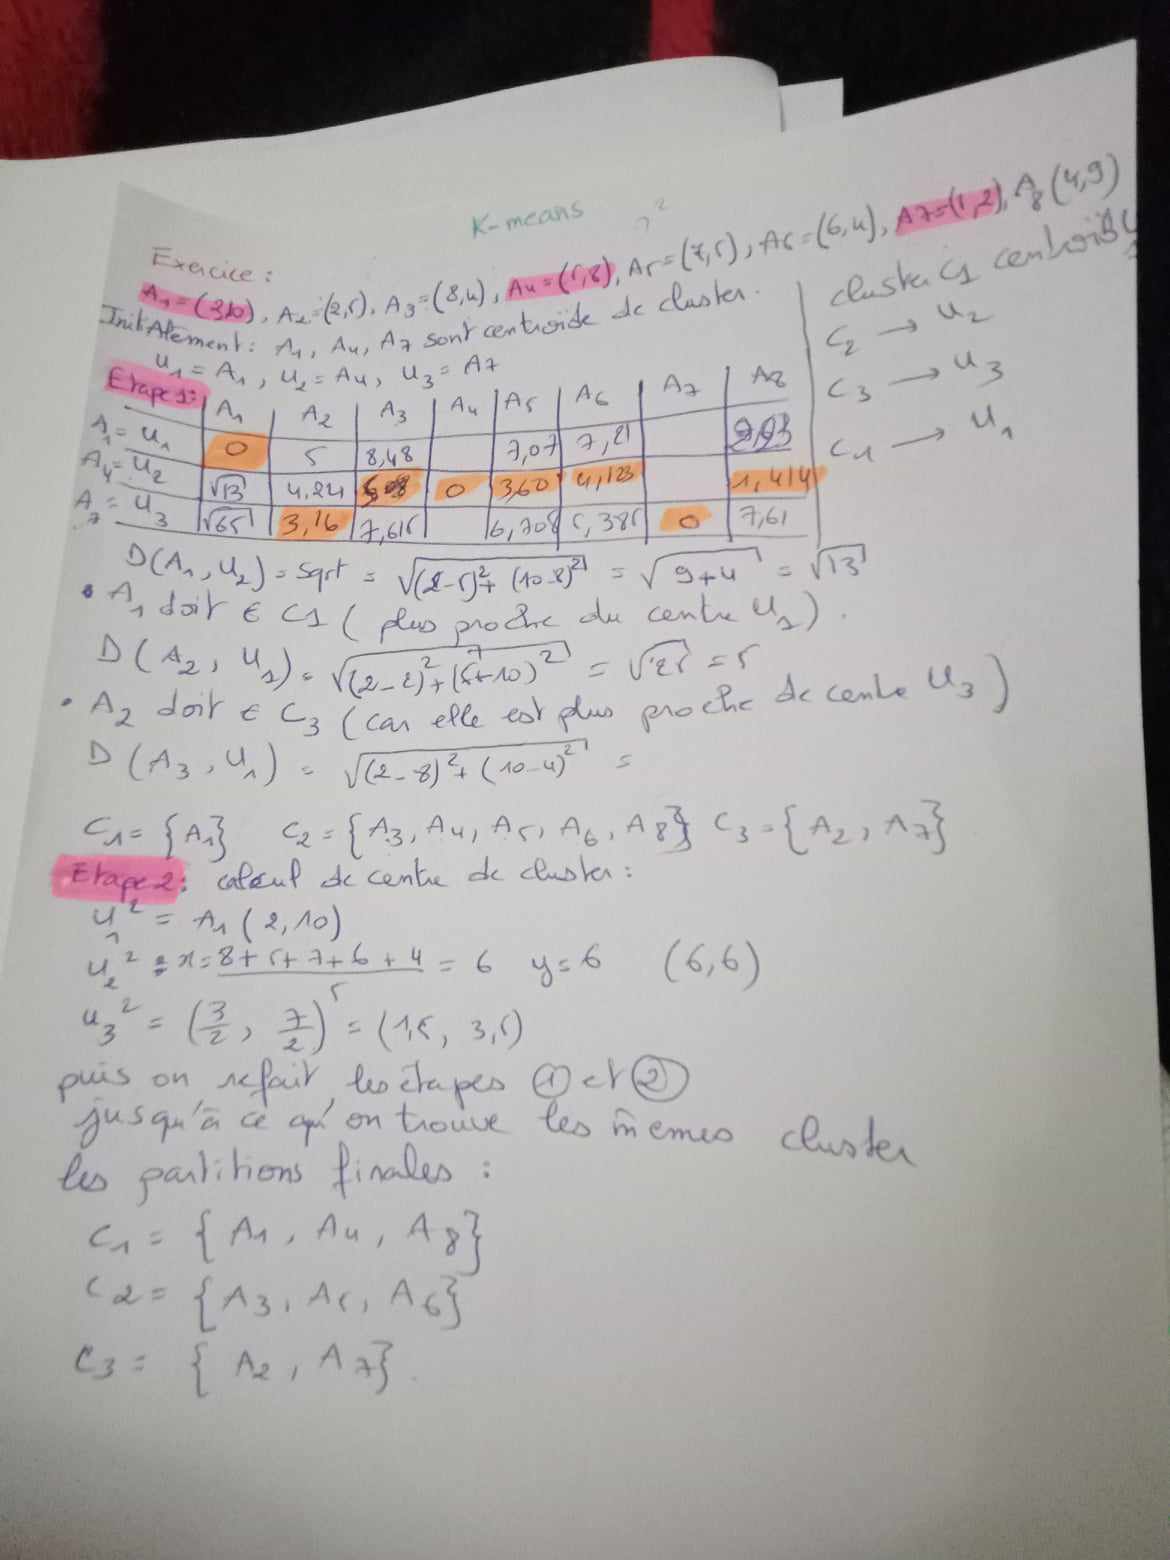 K-means
Exercice :
A1=(2,10), A2=(2,5), A3=(8,4), A4=(5,8), A5=(7,5), A6=(6,4), A7=(1,2), A8(4,9)
InitAlement : A1, A4, A7 sont centroïde de cluster.
u1=A1, u2=A4, u3=A7
cluster C1 centroïd u1
C2 → u2
C3 → u3
C1 → u1
Etape 1:
A1 A2 A3 A4 A5 A6 A7 A8
A1=u1 0 5 8,48 7,07 7,21
A4=u2 √13 4,24 0 3,60 4,123 1,414
A7=u3 √65 3,16 7,615 6,708 5,385 0 7,61
D(A1, u2) = sqrt = √(2-5)²+(10-8)² = √9+4 = √13
• A1 doit ∈ C1 (plus proche du centre u1).
D(A2, u1) = = √25 = 5
• A2 doit ∈ C3 (car elle est plus proche de centre u3)
D(A3, u1) = √(2-8)²+(10-4)² =
C1={A1} C2={A3, A4, A5, A6, A8} C3={A2, A7}
Etape 2: calcul de centre de cluster :
u1² = A1(2,10)
u2² = x= 8+5+7+6+4 / 5 = 6 y=6 (6,6)
u3² = (3/2, 7/2) = (1,5, 3,5)
puis on refait les étapes ① et ②
jusqu'à ce qu'on trouve les mêmes cluster
les partitions finales :
C1 = {A1, A4, A8}
C2 = {A3, A5, A6}
C3 = {A2, A7}.